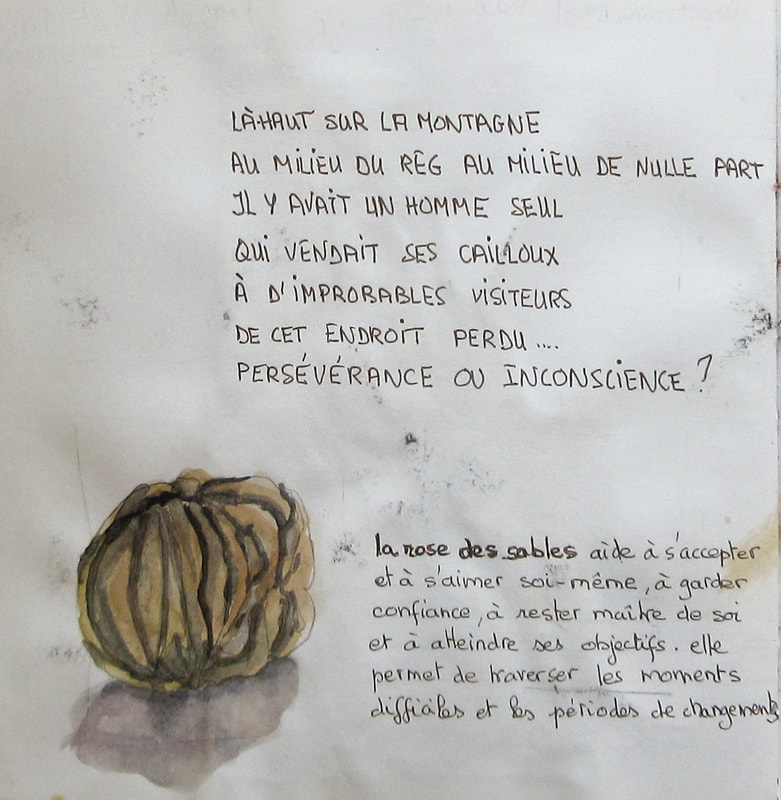 LÀ-HAUT SUR LA MONTAGNE
AU MILIEU DU REG AU MILIEU DE NULLE PART
IL Y AVAIT UN HOMME SEUL
QUI VENDAIT SES CAILLOUX
À D'IMPROBABLES VISITEURS
DE CET ENDROIT PERDU....
PERSÉVÉRANCE OU INCONSCIENCE ?
la rose des sables aide à s'accepter
et à s'aimer soi-même, à garder
confiance, à rester maître de soi
et à atteindre ses objectifs. elle
permet de traverser les moments
difficiles et les périodes de changements